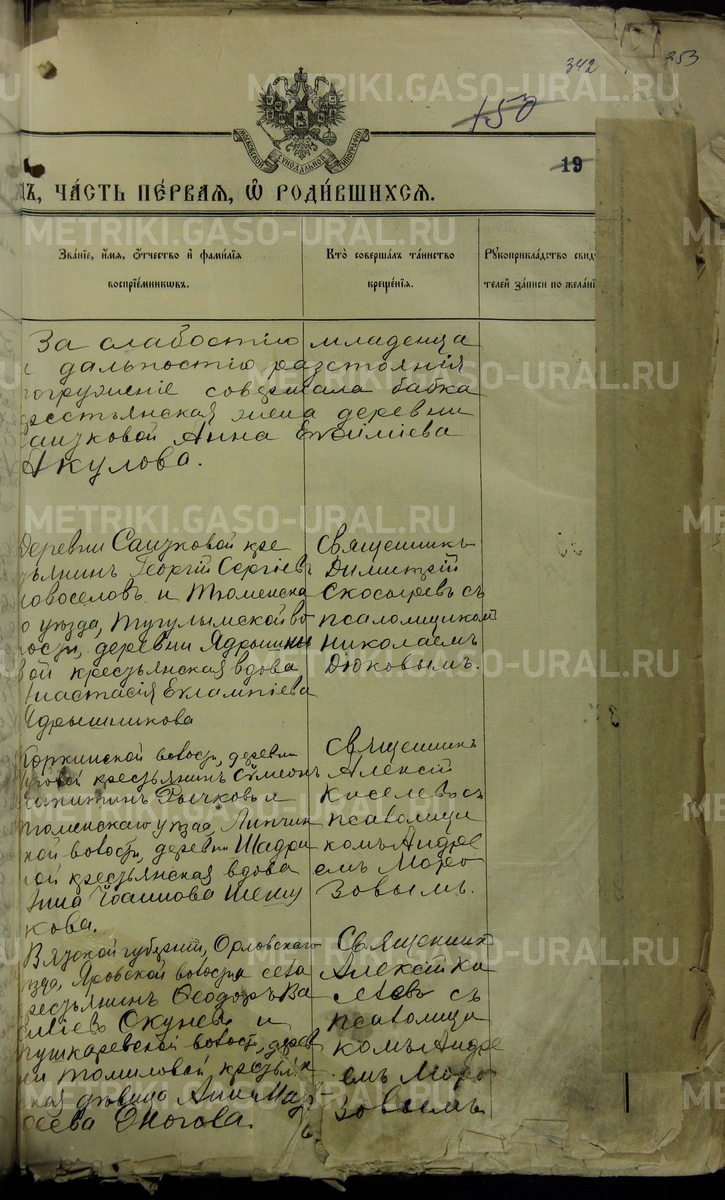 342
253
150
МОСКОВСКОЙ СѴНОДАЛЬНОЙ ТИПОГРАФІИ
19
Ъ, ЧА́СТЬ ПЕ́РВАЯ, Ѡ҆ РОДИ́ВШИХСЯ.
Зва́нїе, и҆́мя, ѻ҆́тчество и҆ фами́лїя
воспрїе́мникѡвъ.
Кто̀ соверша́лъ та́инство
креще́нїя.
Рꙋкоприкла́дство свид
телей за́писи по жела́нї
За слабостію младенца
и дальностію разстоянія
погруженіе совершала бабка
рестьянская жена деревни
Анна Евѳиміева
Акулова.
деревни Саиуковой кре
тьянинъ Георгій Сергіевъ
овоселовъ и Тюменска
о уѣзда, Тугулымской во
лости, деревни
вой крестьянская вдова
настасія Евлампіева
Ядрышникова
Священникъ
Димитрій
Скосыревъ съ
псаломщикомъ
Николаемъ
Дюковымъ.
Коркинской волости, деревни
крестьянинъ Сѵмеонъ
Рычковъ и
Тюменскаго уѣзда, Липчин
кой волости, деревни Шадри
ой крестьянская вдова
Анна Іоаннова
кова.
Священникъ
Алексій
Киселевъ съ
псаломщи
комъ Андре
емъ Моро
зовымъ.
Вятской губерніи, Орловскаго
уѣзда, волости села
рестьянинъ Ѳеодоръ Ва
силіевъ Окуневъ и
пушкаревской волости, дерев
ни Томиловой, крестьян
ская дѣвица Анна
сѣева
Священникъ
Алексій Ки
селевъ съ
псаломщи
комъ Андре
емъ Моро
зовымъ
METRIKI.GASO-URAL.RU